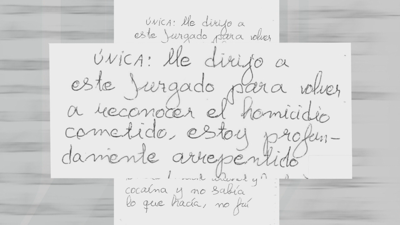 ÚNICA: Me dirijo a
este Jurgado para volver
ÚNICA: Me dirijo a
este Jurgado para volver
a reconocer el homicidio
cometido, estoy profun-
damente arrepentido
cocaína y no sabía
lo que hacía, no fui